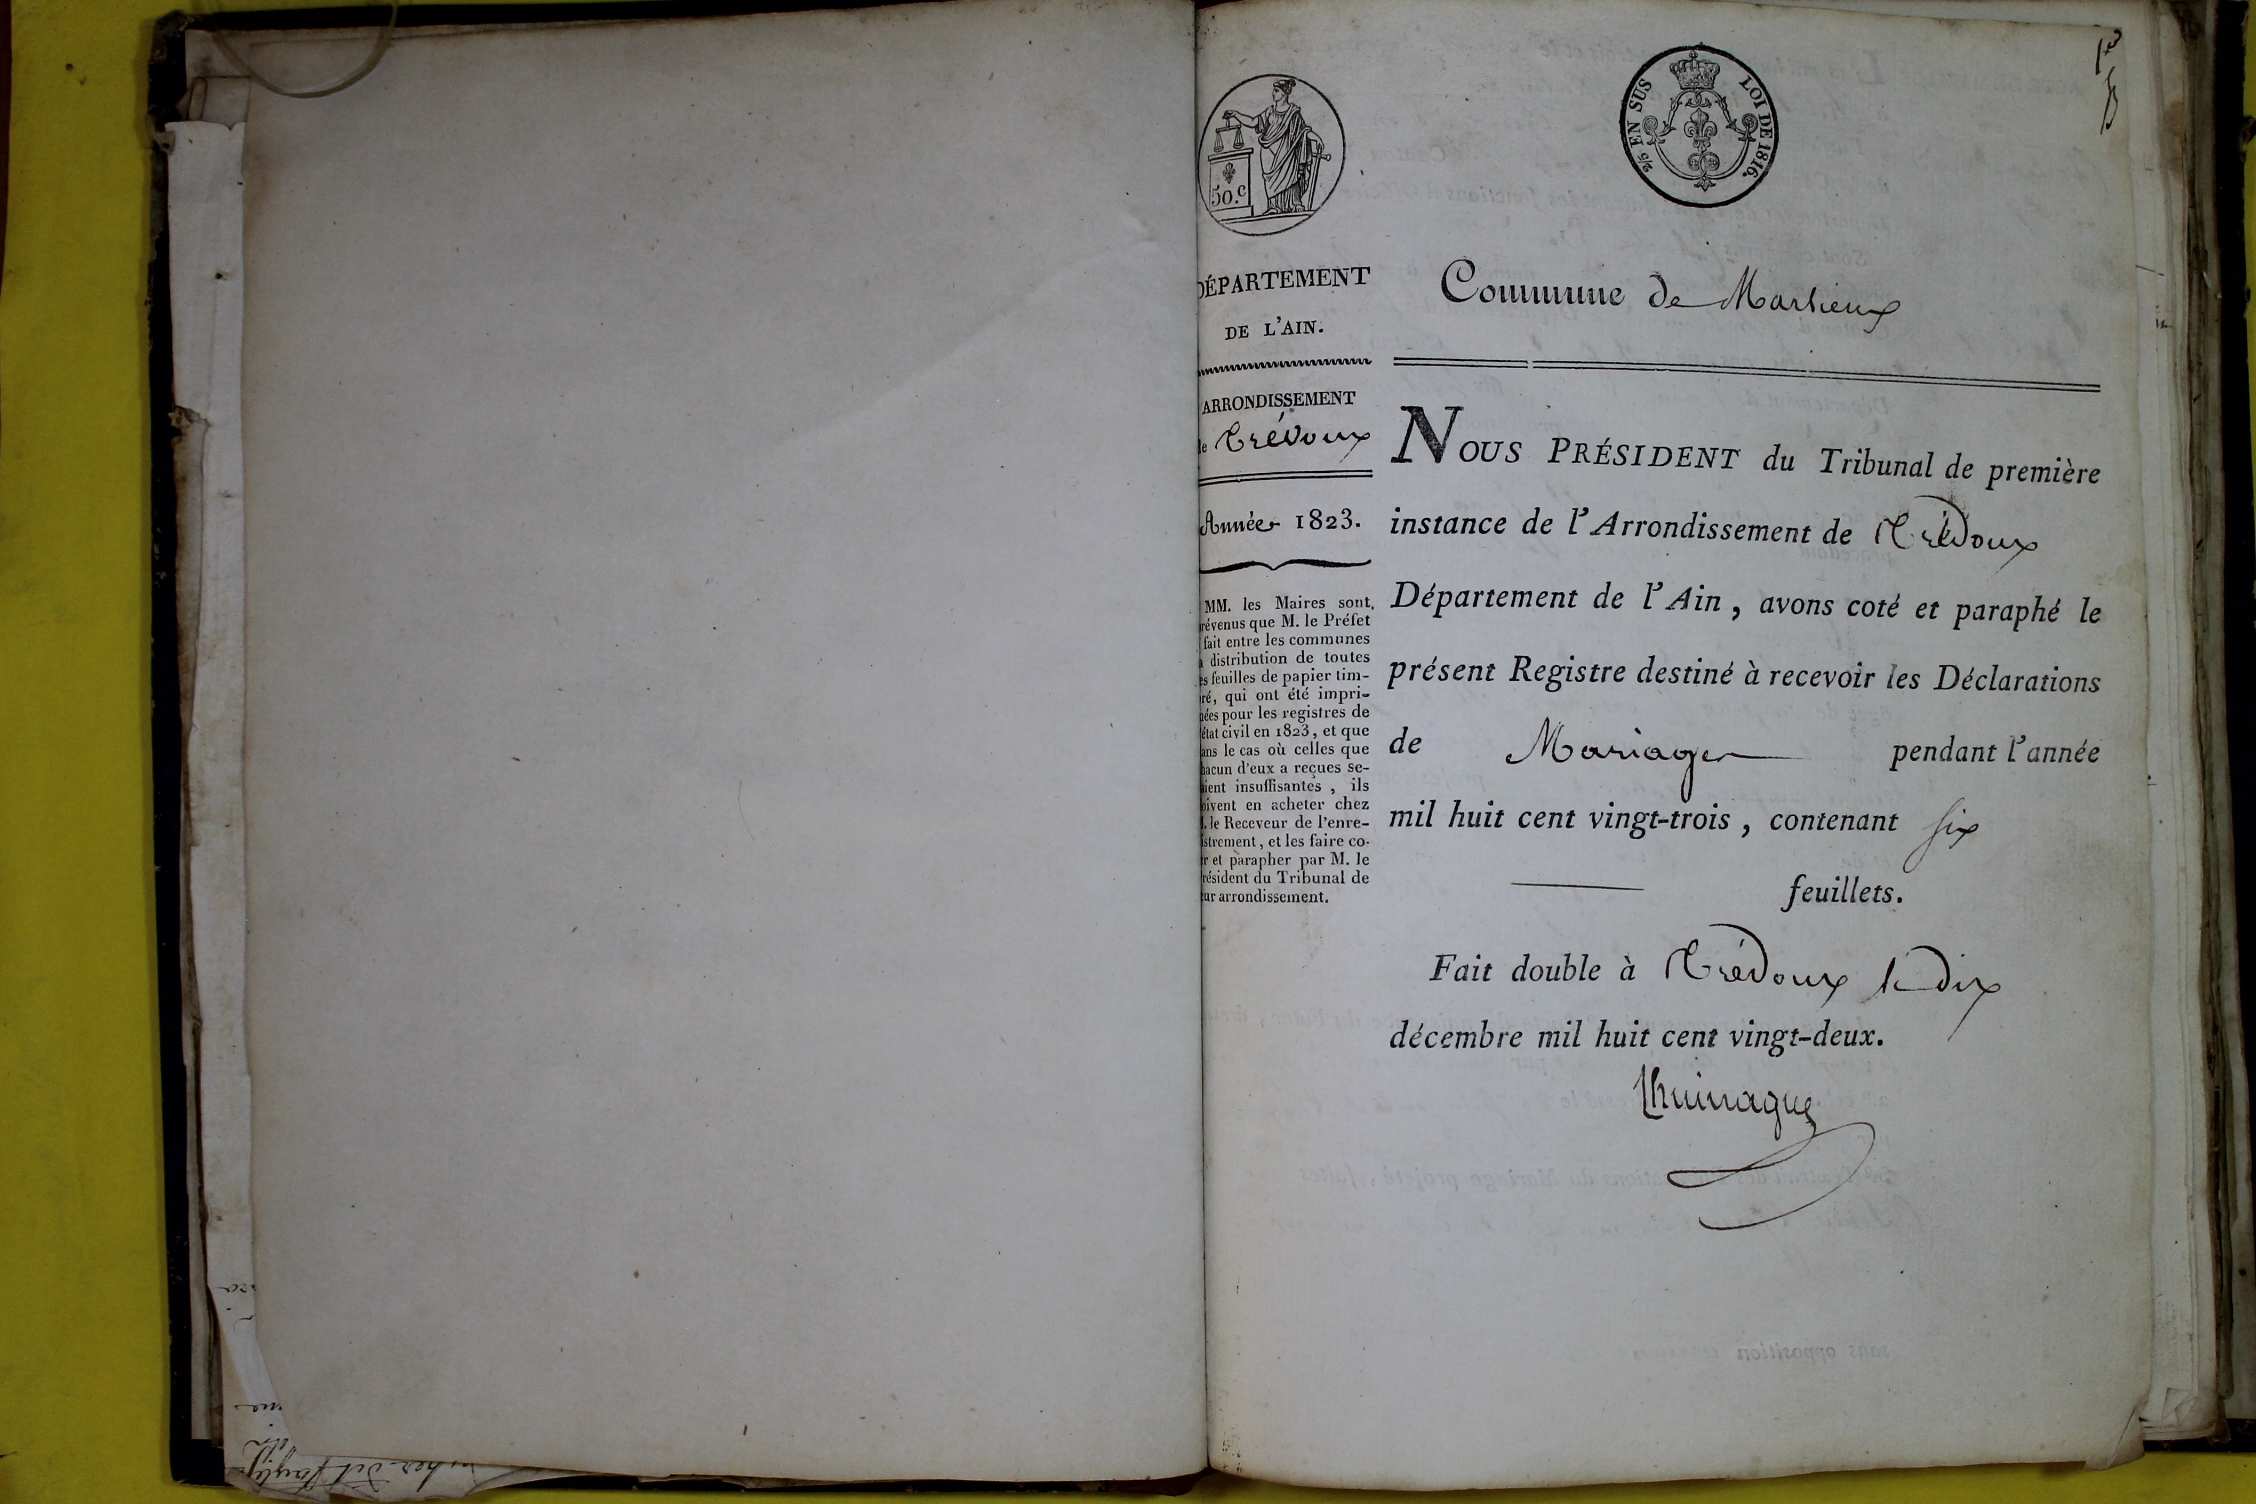 50.c
2/5 EN SUS LOI DE 1816.
1er
DÉPARTEMENT
DE L'AIN.
ARRONDISSEMENT
de Trévoux
Année 1823.
MM. les Maires sont
révenus que M. le Préfet
fait entre les communes
a distribution de toutes
es feuilles de papier tim-
ré, qui ont été impri-
ées pour les registres de
état civil en 1823, et que
ans le cas où celles que
hacun d'eux a reçues se-
aient insuffisantes, ils
oivent en acheter chez
. le Receveur de l'enre-
istrement, et les faire co-
r et parapher par M. le
résident du Tribunal de
ur arrondissement.
Commune de Marlieux
NOUS PRÉSIDENT du Tribunal de première
instance de l'Arrondissement de Trévoux
Département de l'Ain, avons coté et paraphé le
présent Registre destiné à recevoir les Déclarations
de Mariages pendant l'année
mil huit cent vingt-trois, contenant six
feuillets.
Fait double à Trévoux le dix
décembre mil huit cent vingt-deux.